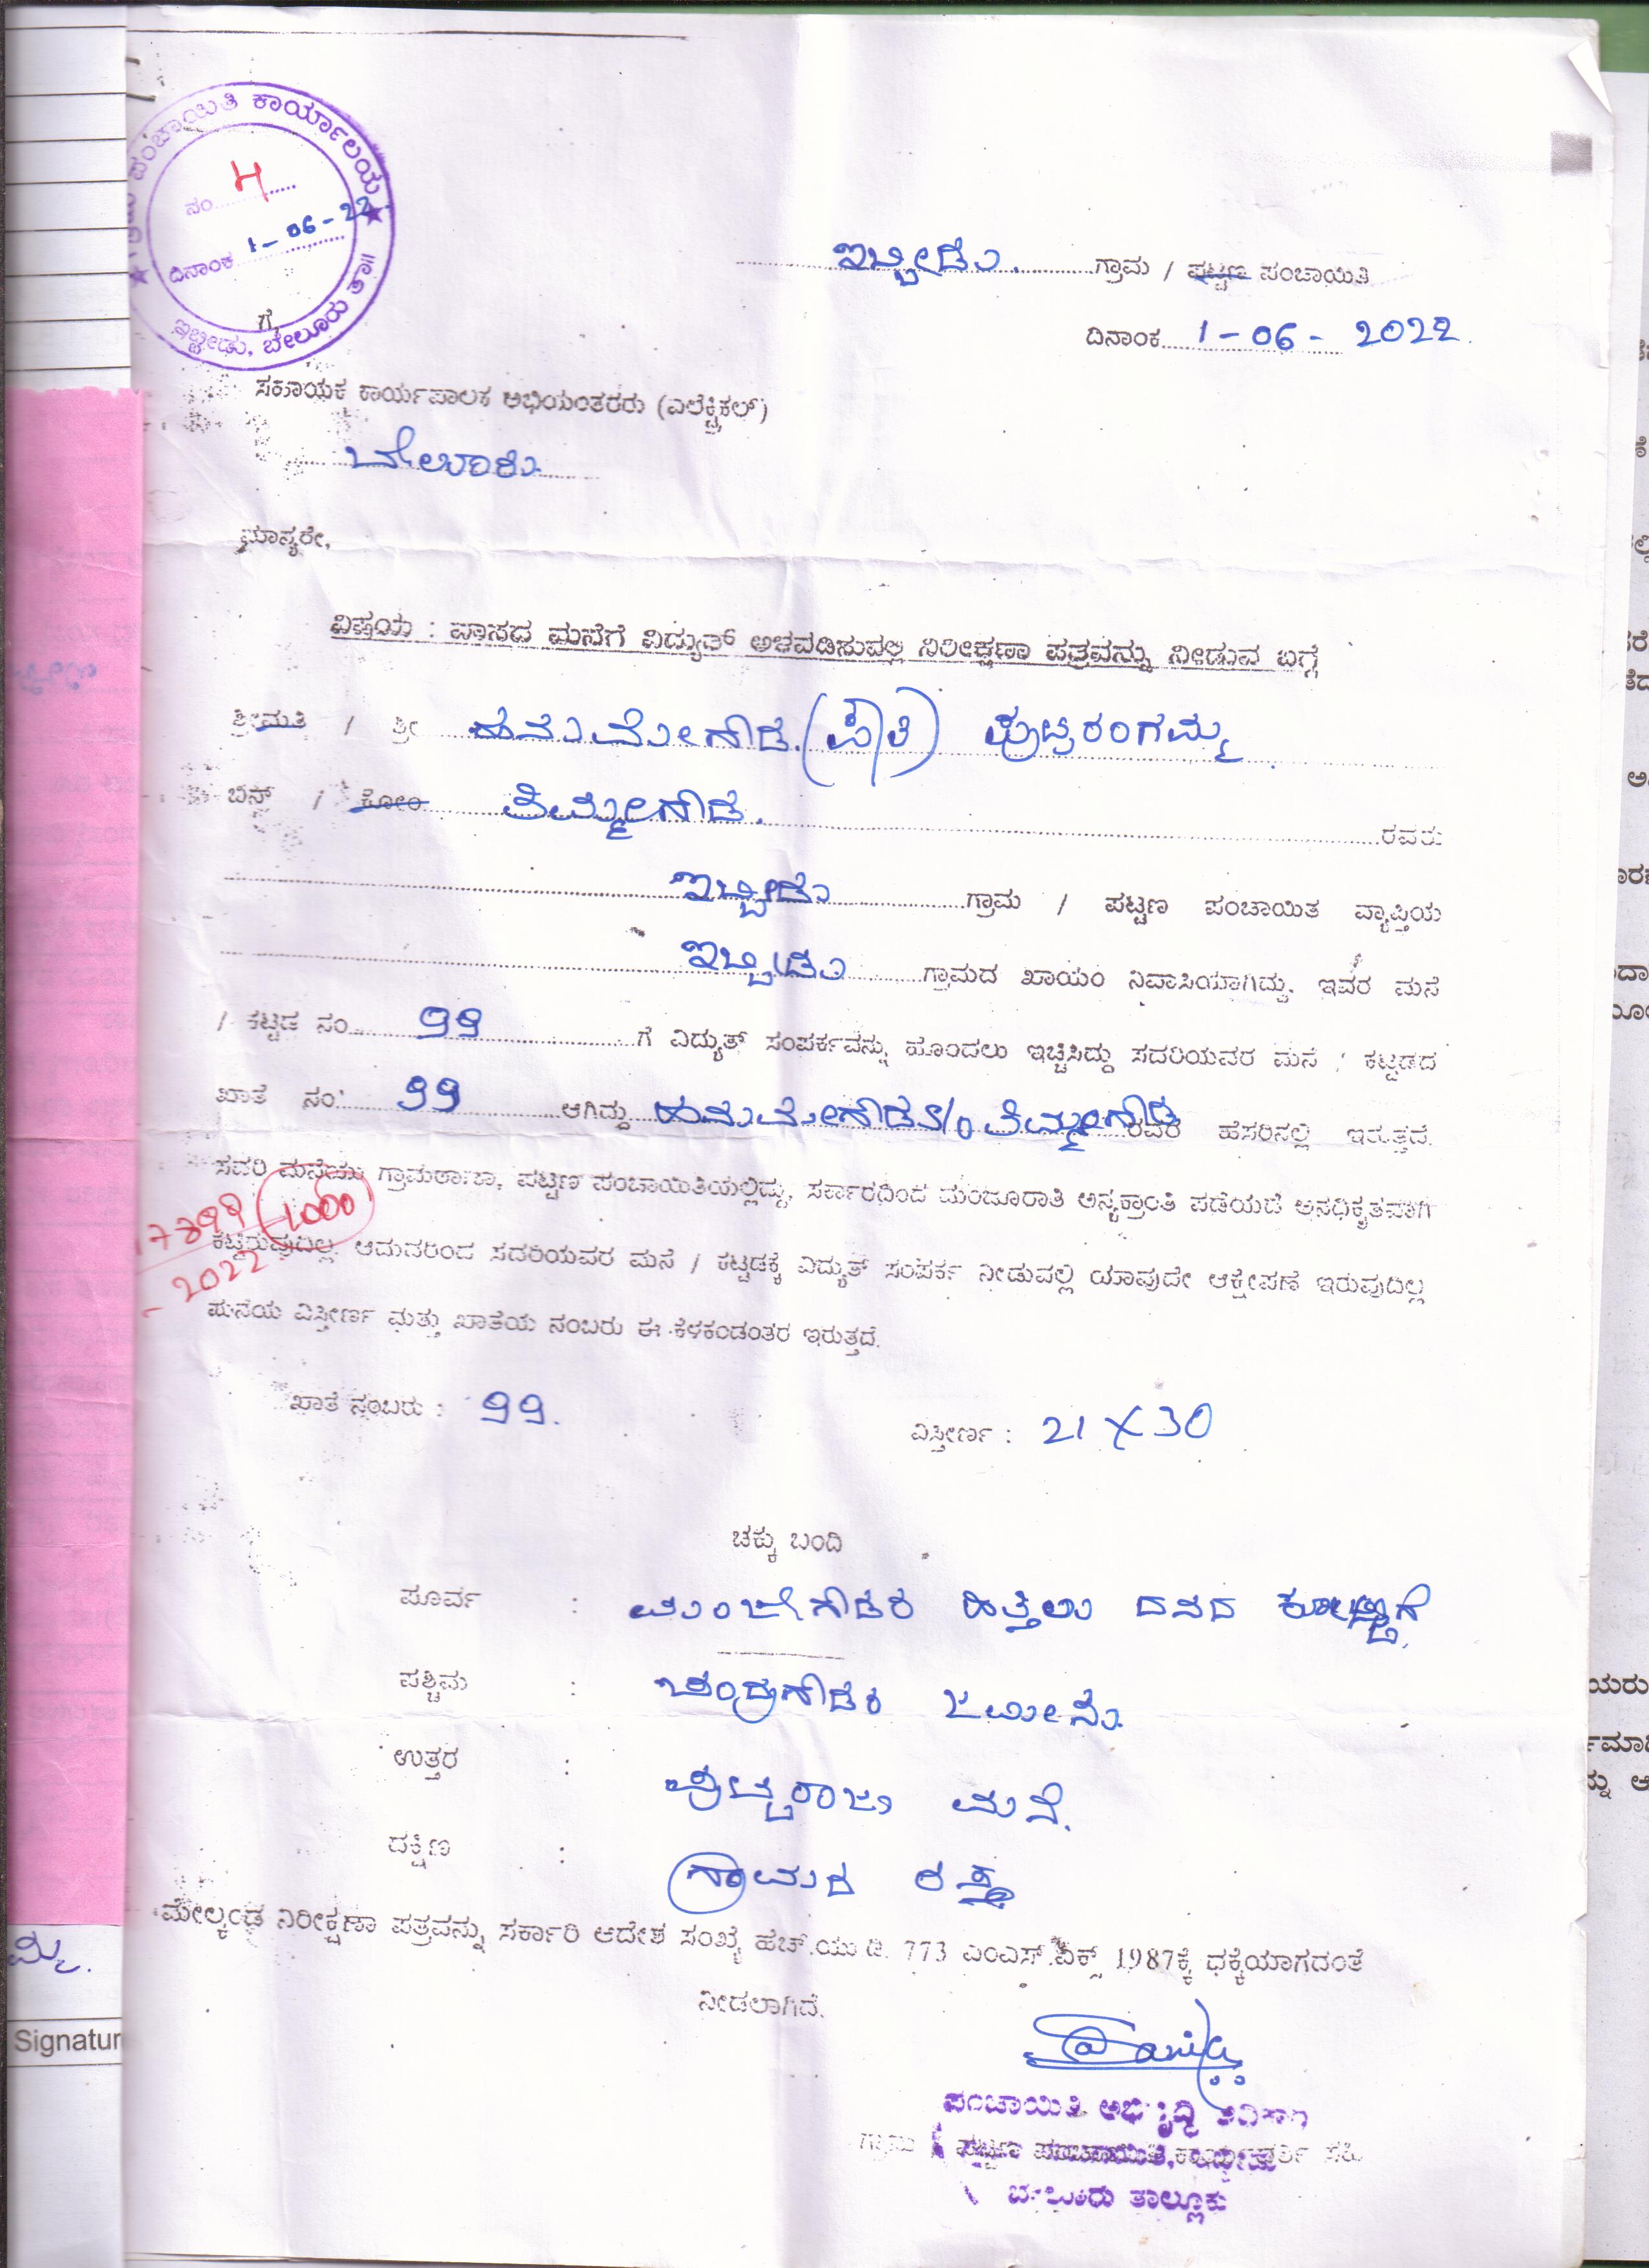 ಪಂಚಾಯಿತಿ ಕಾರ್ಯಾಲಯ
ನಂ. 4
ದಿನಾಂಕ 1-06-22
ಇಬ್ಬೀಡು, ಬೇಲೂರು ತಾ॥
ಇಬ್ಬೀಡು. ಗ್ರಾಮ / ಪಟ್ಟಣ ಪಂಚಾಯಿತಿ
ದಿನಾಂಕ 1-06-2022
ಗೆ,
ಸಹಾಯಕ ಕಾರ್ಯಪಾಲಕ ಅಭಿಯಂತರರು (ಎಲೆಕ್ಟ್ರಿಕಲ್)
ಬೇಲೂರು
ಮಾನ್ಯರೇ,
ವಿಷಯ : ವಾಸದ ಮನೆಗೆ ವಿದ್ಯುತ್ ಅಳವಡಿಸುವಲ್ಲಿ ನಿರೀಕ್ಷಣಾ ಪತ್ರವನ್ನು ನೀಡುವ ಬಗ್ಗೆ
ಶ್ರೀಮತಿ / ಶ್ರೀ ಹನುಮೇಗೌಡ (ಪೌತಿ) ಪುಟ್ಟರಂಗಮ್ಮ
ಬಿನ್ / ಕೋಂ ತಿಮ್ಮೇಗೌಡ. ರವರು
ಇಬ್ಬೀಡು ಗ್ರಾಮ / ಪಟ್ಟಣ ಪಂಚಾಯಿತ ವ್ಯಾಪ್ತಿಯ
ಇಬ್ಬೀಡು ಗ್ರಾಮದ ಖಾಯಂ ನಿವಾಸಿಯಾಗಿದ್ದು, ಇವರ ಮನೆ
/ ಕಟ್ಟಡ ನಂ. 99 ಗೆ ವಿದ್ಯುತ್ ಸಂಪರ್ಕವನ್ನು ಹೊಂದಲು ಇಚ್ಚಿಸಿದ್ದು ಸದರಿಯವರ ಮನೆ / ಕಟ್ಟಡದ
ಖಾತೆ ನಂ. 99 ಆಗಿದ್ದು ಹನುಮೇಗೌಡ S/o ತಿಮ್ಮೇಗೌಡ ರವರ ಹೆಸರಿನಲ್ಲಿ ಇರುತ್ತದೆ.
ಸದರಿ ಮನೆಯು ಗ್ರಾಮಠಾಣಾ, ಪಟ್ಟಣ ಪಂಚಾಯಿತಿಯಲ್ಲಿದ್ದು, ಸರ್ಕಾರದಿಂದ ಮಂಜೂರಾತಿ ಅನ್ಯಕ್ರಾಂತಿ ಪಡೆಯದೆ ಅನಧಿಕೃತವಾಗಿ
1000
ಕಟ್ಟಿರುವುದಿಲ್ಲ. ಆದುದರಿಂದ ಸದರಿಯವರ ಮನೆ / ಕಟ್ಟಡಕ್ಕೆ ವಿದ್ಯುತ್ ಸಂಪರ್ಕ ನೀಡುವಲ್ಲಿ ಯಾವುದೇ ಆಕ್ಷೇಪಣೆ ಇರುವುದಿಲ್ಲ
2022
ಮನೆಯ ವಿಸ್ತೀರ್ಣ ಮತ್ತು ಖಾತೆಯ ನಂಬರು ಈ ಕೆಳಕಂಡಂತರ ಇರುತ್ತದೆ.
ಖಾತೆ ನಂಬರು : 99.
ವಿಸ್ತೀರ್ಣ : 21 X 30
ಚಕ್ಕು ಬಂದಿ
ಪೂರ್ವ : ಮಂಜೇಗೌಡರ ಹಿತ್ತಲು ದನದ ಕೊಟ್ಟಿಗೆ
ಪಶ್ಚಿಮ : ಚಂದ್ರೇಗೌಡರ ಜಮೀನು
ಉತ್ತರ : ಪುಟ್ಟರಾಜು ಮನೆ.
ದಕ್ಷಿಣ : ಗ್ರಾಮದ ರಸ್ತೆ
ಮೇಲ್ಕಂಡ ನಿರೀಕ್ಷಣಾ ಪತ್ರವನ್ನು ಸರ್ಕಾರಿ ಆದೇಶ ಸಂಖ್ಯೆ ಹೆಚ್.ಯು.ಡಿ. 773 ಎಂಎಸ್.ಎಕ್ಸ್ 1987ಕ್ಕೆ ಧಕ್ಕೆಯಾಗದಂತೆ
ನೀಡಲಾಗಿದೆ.
Signatur
ಪಂಚಾಯಿತಿ ಅಭಿವೃದ್ಧಿ ಅಧಿಕಾರಿ
ಬೇಲೂರು ತಾಲ್ಲೂಕು